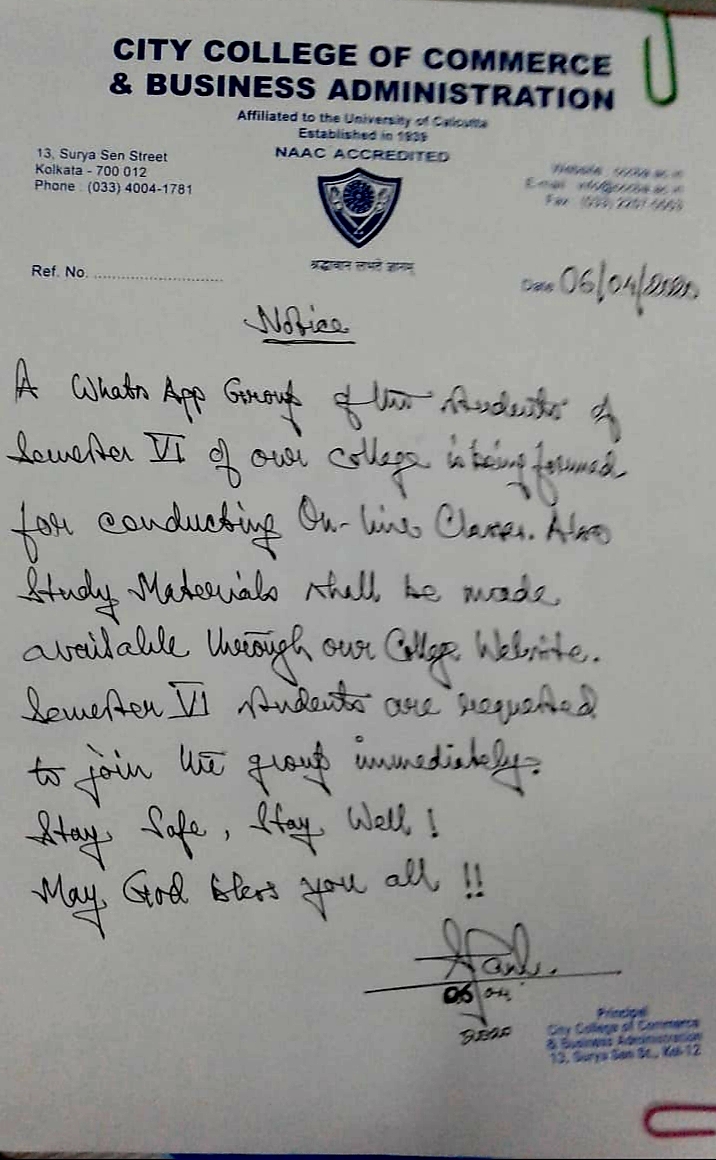 CITY COLLEGE OF COMMERCE
& BUSINESS ADMINISTRATION
Affiliated to the University of Calcutta
Established in 1939
NAAC ACCREDITED
13, Surya Sen Street
Kolkata - 700 012
Phone : (033) 4004-1781
Website :
E-mail :
Fax : (033)
श्रद्धावान लभते ज्ञानम्
Ref. No. ..............................
Date 06/04/2020
Notice
A Whats App Group of the students of
Semester VI of our college is being formed
for conducting On-line Classes. Also
Study Materials shall be made
available through our College Website.
Semester VI students are requested
to join the group immediately.
Stay Safe, Stay Well !
May God bless you all !!
06/04
2020
Principal
City College of Commerce
& Business Administration
13, Surya Sen St., Kol-12